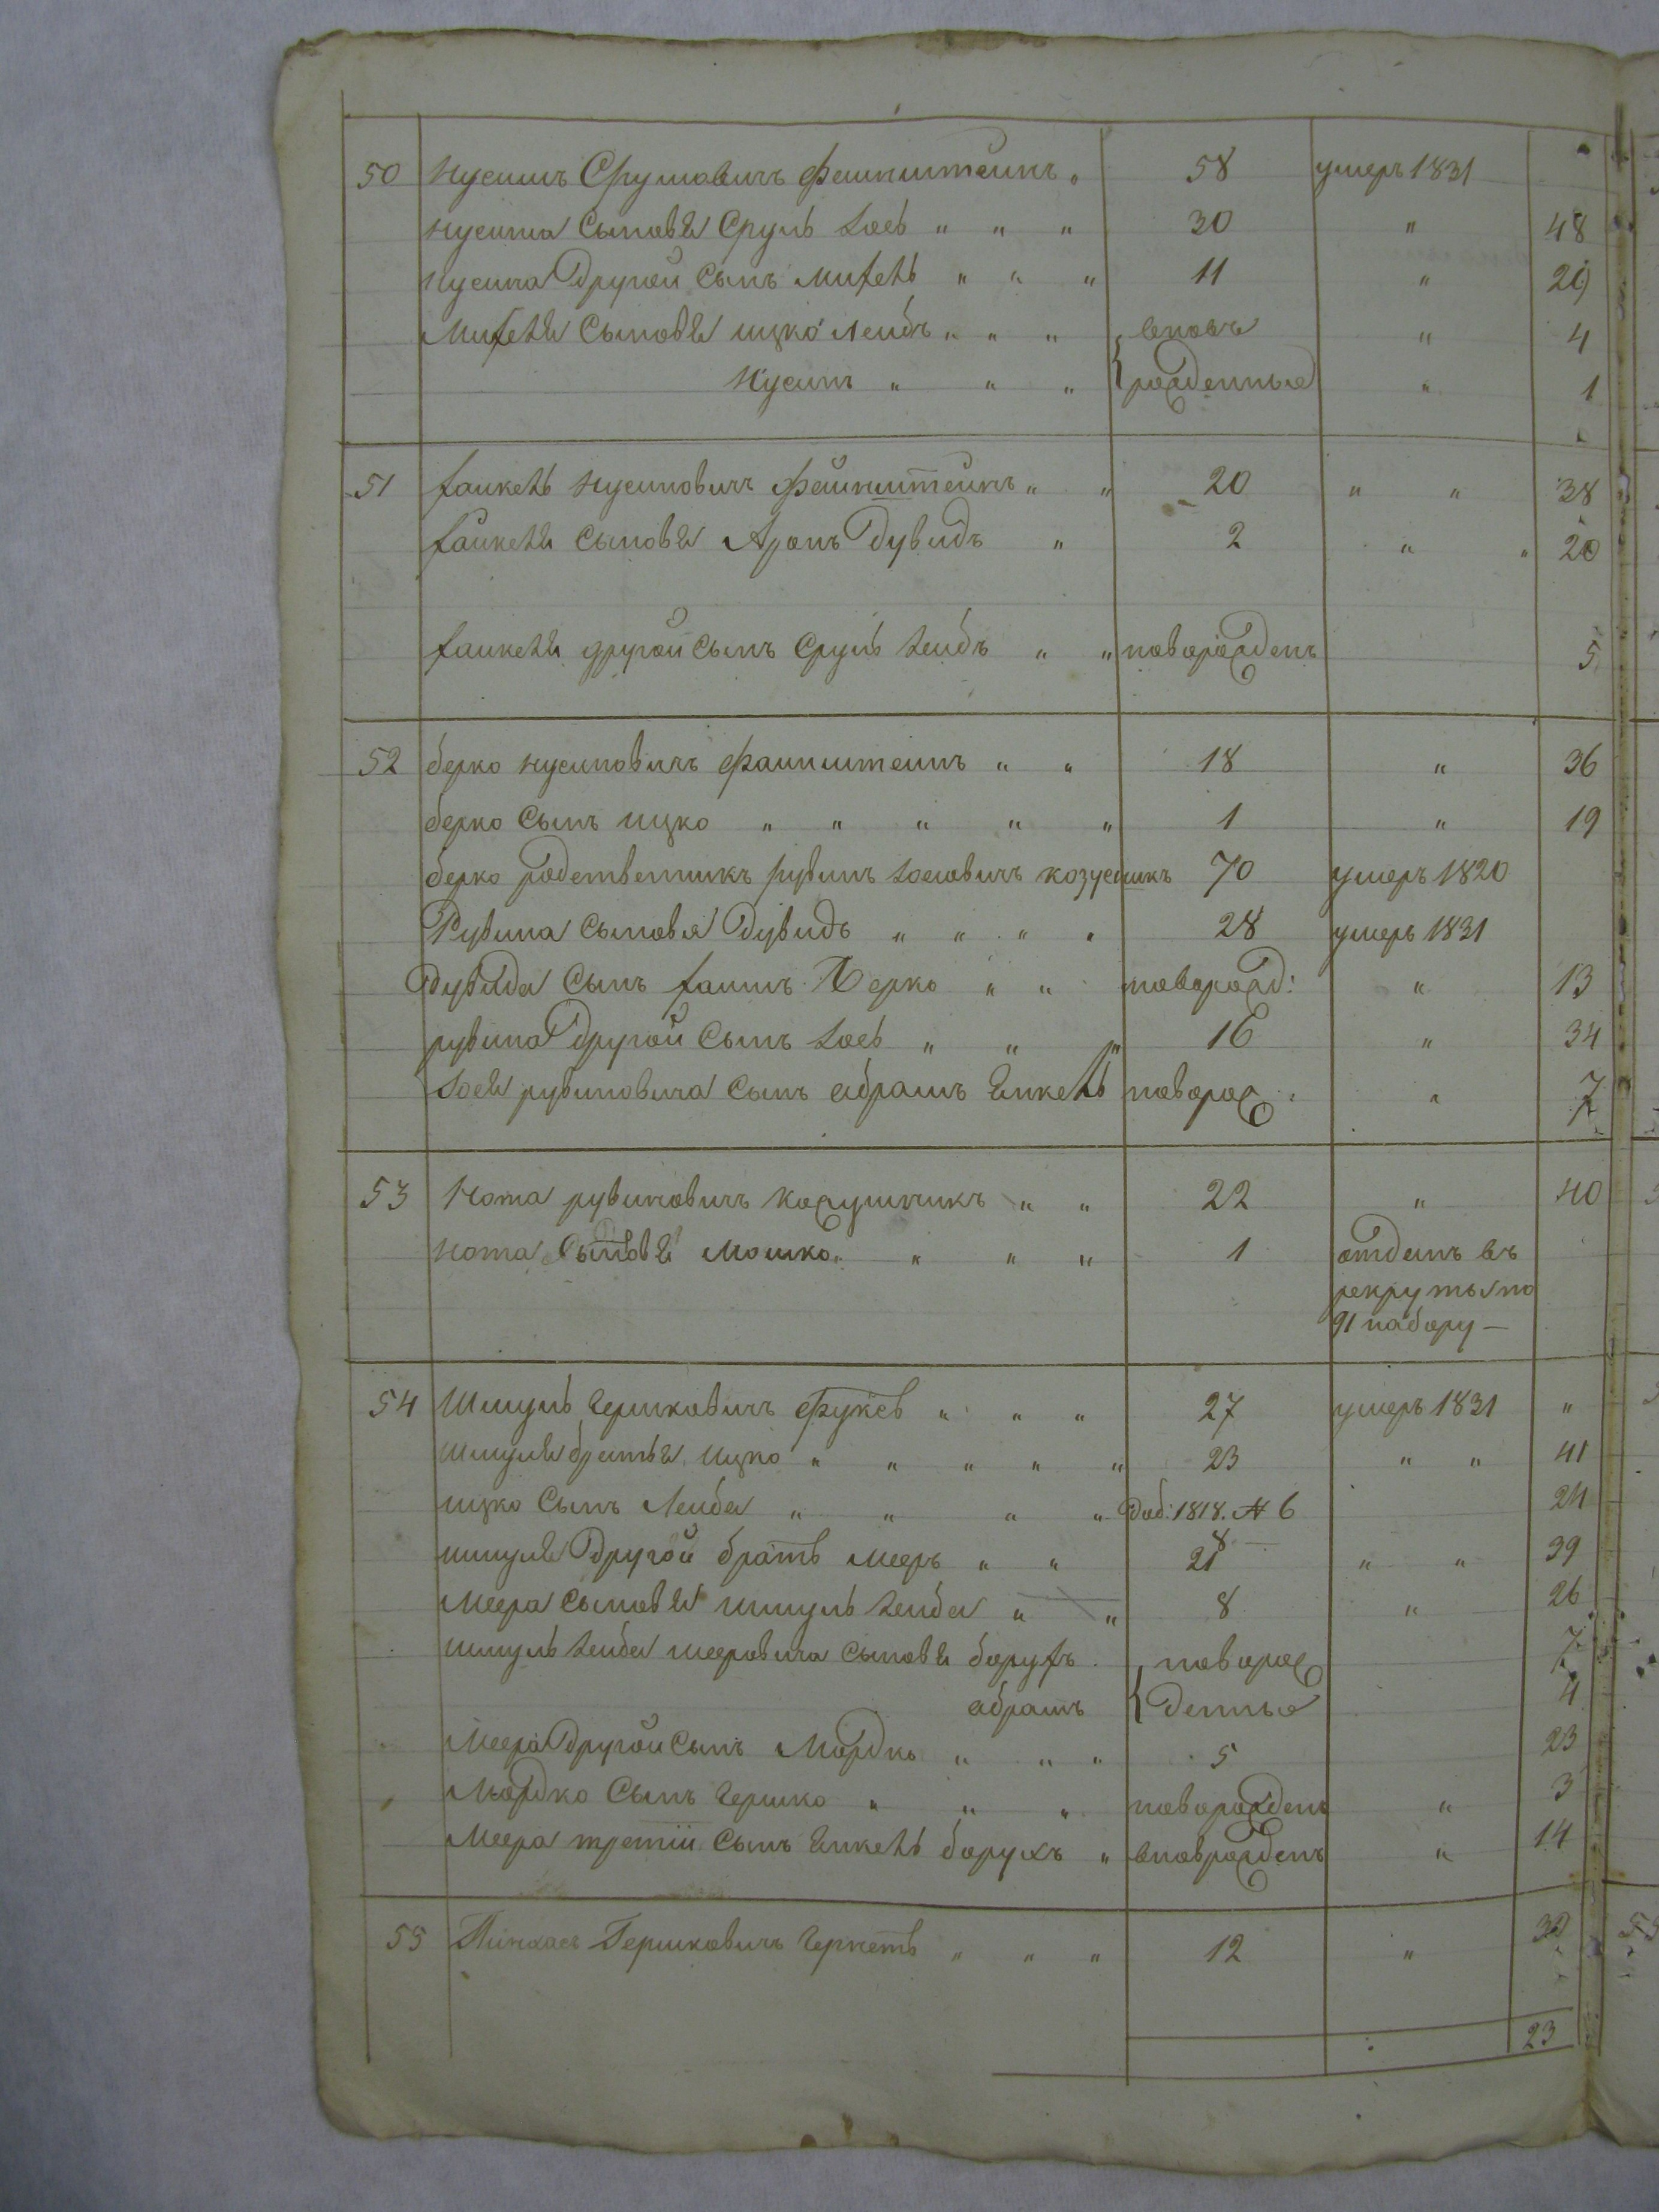 50 Нусинъ Срулiовичъ Файнштейнъ " 58 умеръ 1831
Нусина Сыновья Сруль Іось " " " 30 " 48
Нусина Другой Сынъ Михель " " " 11 " 29
Михеля Сыновья Ицко Лейбъ " " " вновь " 4
Нусинъ " " " рожденные " 1
51 Хаикель Нусиновичъ Файнштейнъ " " 20 " " 38
Хаикеля Сыновья Аронъ Дувидъ " 2 " " 20
Хаикеля другой Сынъ Сруль Лейбъ " " новорожденъ 5
52 Берко Нусиновичъ Файнштейнъ " " 18 " 36
Берко Сынъ Ицко " " " " " 1 " 19
Берко родственникъ Рувинъ Іосiовичъ 70 умеръ 1820
Рувина Сыновья Дувидъ " " " " 28 умеръ 1831
Дувида Сынъ Хаимъ Берко " " новорожд: " 13
Рувина Другой Сынъ Іось " " " 16 " 34
Іося Рувиновича Сынъ Абрамъ Янкель новорож: " 7
53 Нота Рувиновичъ Кожушникъ " " 22 " 40
Нота Сыновья Мошко " " " " 1 отданъ въ
рекруты по
91 набору —
54 Шмуль Гершковичъ Фуксъ " " " 27 умеръ 1831 "
Шмуля братья Ицко " " " " " 23 " " 41
Ицко Сынъ Лейба " " " " Доб: 1818. № 6 24
Шмуля Другой братъ Мееръ " " 21 " " 39
Меера Сыновья Шмуль Лейба " " 8 " 26
Шмуль Лейба Мееровича Сыновья Борухъ новорож 7
Абрамъ денные 4
Меера Другой Сынъ Мордко " " " 5 23
Мордко Сынъ Гершко " " " новорожденъ " 3
Меера третiй Сынъ Янкель Борухъ " вноврожденъ " 14
55 Пинхасъ Гершковичъ " " " 12 " 30
23